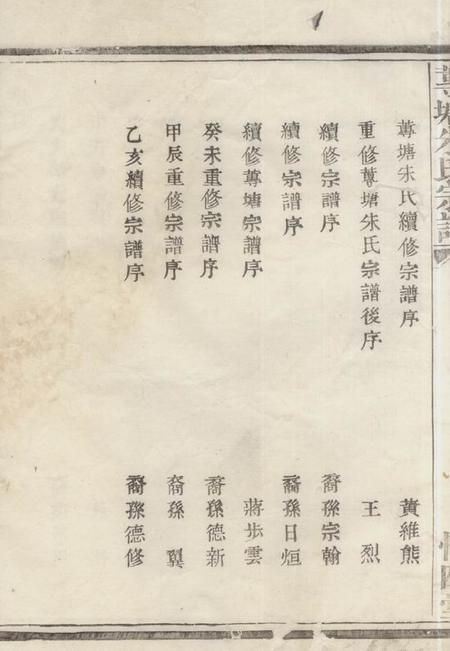 蓴塘朱氏續修宗譜序 黃維熊
重修蓴塘朱氏宗譜後序 王烈
續修宗譜序 裔孫宗翰
續修宗譜序 裔孫日烜
續修蓴塘宗譜序 蔣步雲
癸未重修宗譜序 裔孫德新
甲辰重修宗譜序 裔孫翼
乙亥續修宗譜序 裔孫德修